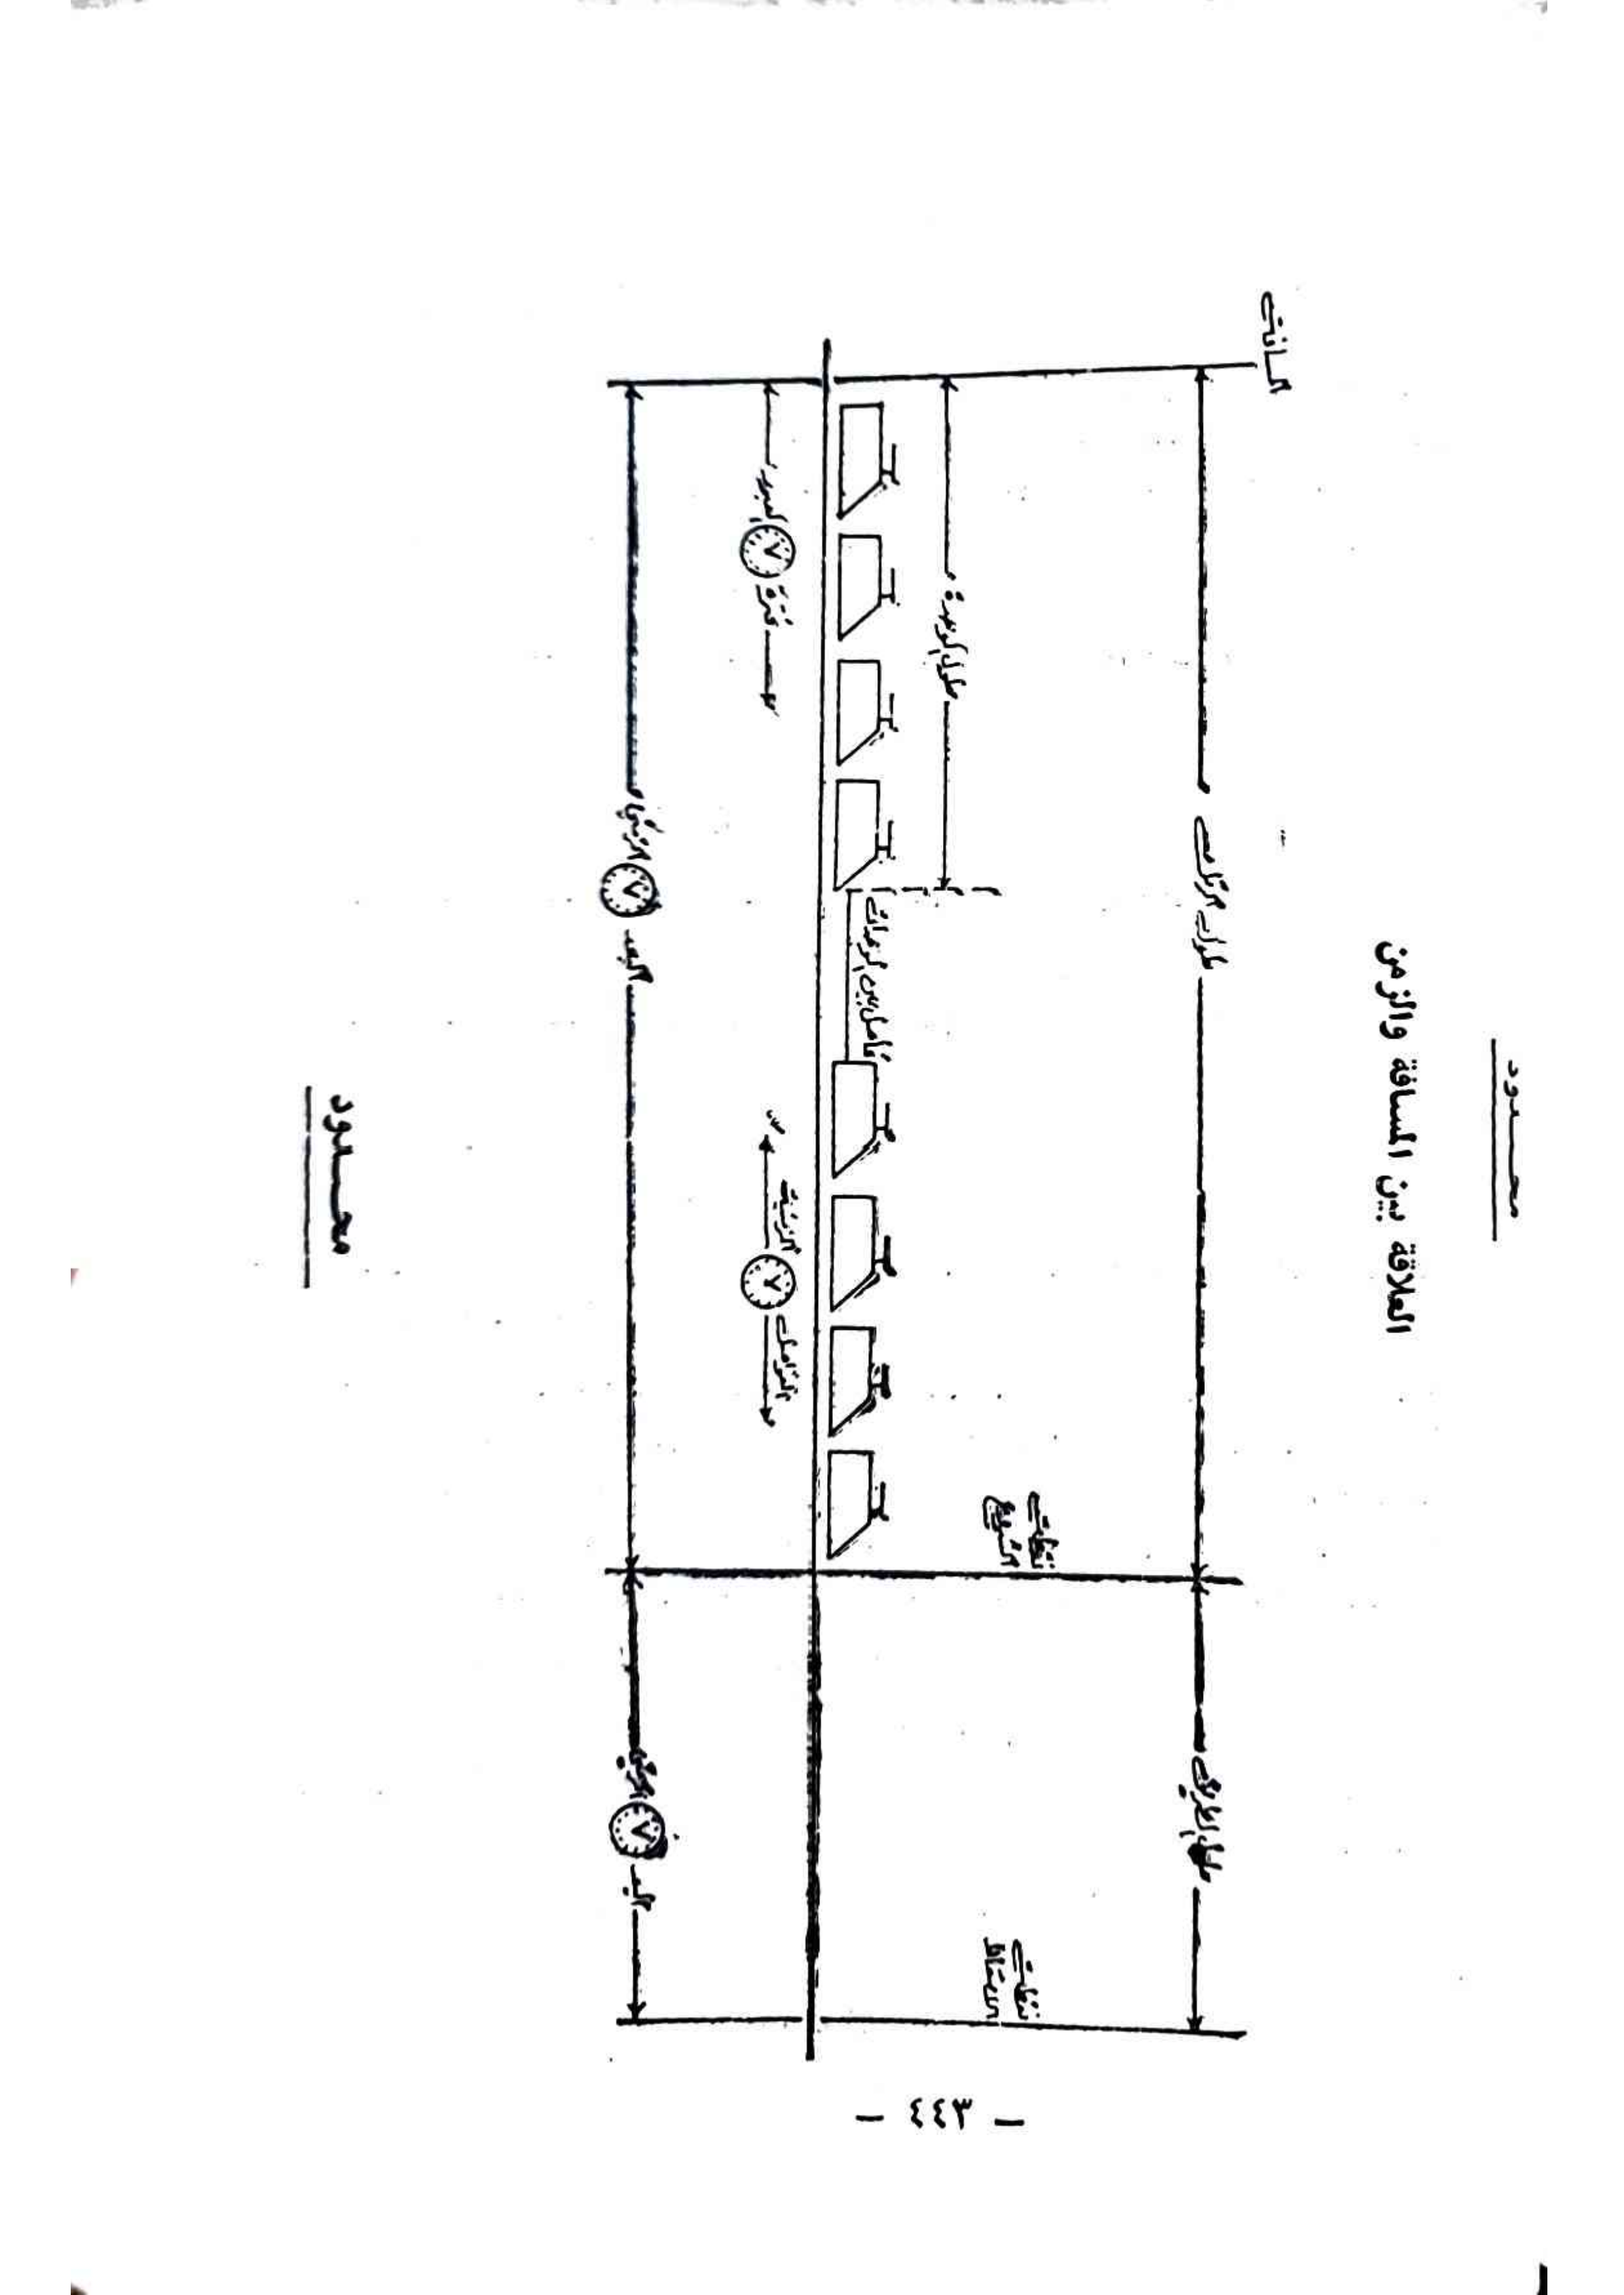 محــدود
العلاقة بين المسافة والزمن
المسافة
طول الرتل
طول الطريق
طول الوحدة
نقطة
الشروع
نقطة
فاصل بين الوحدات
فترة
العبور
الفاصلة
الزمنية
البعد
الزمني
محــدود
- ٤٤٣ -